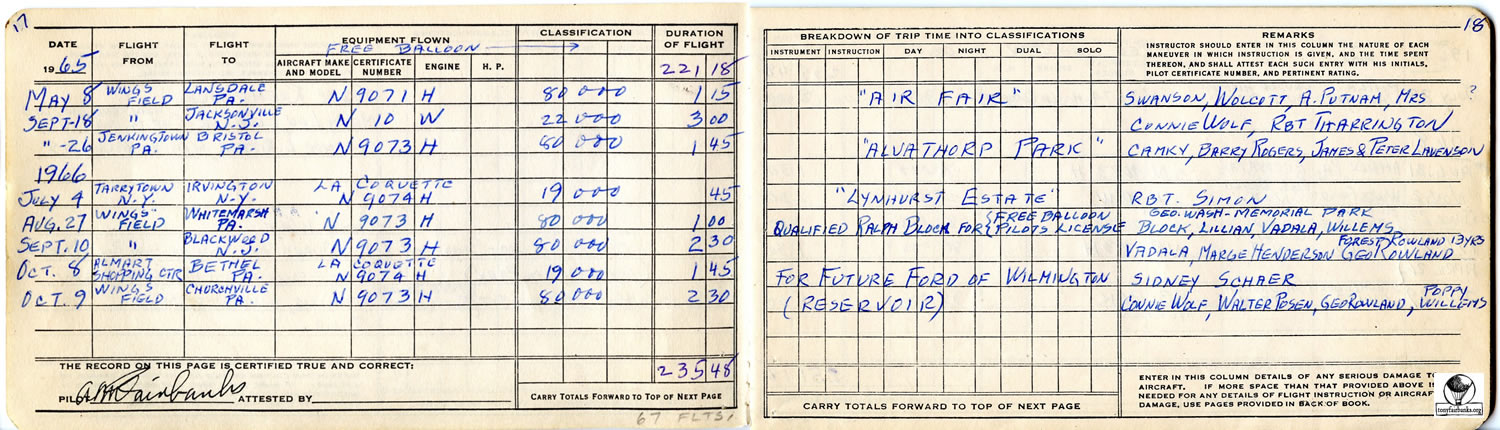 17
DATE
1965
FLIGHT FROM
FLIGHT TO
EQUIPMENT FLOWN
FREE BALLOON
AIRCRAFT MAKE AND MODEL
CERTIFICATE NUMBER
ENGINE
H. P.
CLASSIFICATION
DURATION OF FLIGHT
221 18
MAY 8 WINGS FIELD LANSDALE PA. N 9071 H 80 000 1 15
SEPT-18 " JACKSONVILLE N.J. N 10 W 22 000 3 00
" -26 JENKINGTOWN PA. BRISTOL PA. N 9073 H 80 000 1 45
1966
JULY 4 TARRYTOWN N.Y. IRVINGTON N.Y. LA COQUETTE N 9074 H 19 000 45
AUG. 27 WINGS FIELD WHITEMARSH PA. N 9073 H 80 000 1 00
SEPT. 10 " BLACKWOOD N.J. N 9073 H 80 000 2 30
OCT. 8 ALMART SHOPPING CTR BETHEL PA. LA COQUETTE N 9074 H 19 000 1 45
OCT. 9 WINGS FIELD CHURCHVILLE PA. N 9073 H 80 000 2 30
THE RECORD ON THIS PAGE IS CERTIFIED TRUE AND CORRECT:
235 48
PILOT A M Fairbanks ATTESTED BY
CARRY TOTALS FORWARD TO TOP OF NEXT PAGE
67 FLTS.
18
BREAKDOWN OF TRIP TIME INTO CLASSIFICATIONS
INSTRUMENT INSTRUCTION DAY NIGHT DUAL SOLO
REMARKS
INSTRUCTOR SHOULD ENTER IN THIS COLUMN THE NATURE OF EACH
MANEUVER IN WHICH INSTRUCTION IS GIVEN, AND THE TIME SPENT
THEREON, AND SHALL ATTEST EACH SUCH ENTRY WITH HIS INITIALS,
PILOT CERTIFICATE NUMBER, AND PERTINENT RATING.
"AIR FAIR" SWANSON, WOLCOTT, A. PUTNAM, MRS ?
CONNIE WOLF, RBT THARRINGTON
"ALVATHORP PARK" CAMKY, BARRY ROGERS, JAMES & PETER LAVENSON
"LYNHURST ESTATE" RBT. SIMON
GEO. WASH-MEMORIAL PARK
QUALIFIED RALPH BLOCK FOR { FREE BALLOON PILOTS LICENSE BLOCK, LILLIAN, VADALA, WILLEMS
FOREST ROWLAND 13 YRS
VADALA, MARGE HENDERSON GEO ROWLAND
FOR FUTURE FORD OF WILMINGTON SIDNEY SCHAER
(RESERVOIR) CONNIE WOLF, WALTER POSEN, GEO ROWLAND, POPPY WILLEMS
CARRY TOTALS FORWARD TO TOP OF NEXT PAGE
ENTER IN THIS COLUMN DETAILS OF ANY SERIOUS DAMAGE TO
AIRCRAFT. IF MORE SPACE THAN THAT PROVIDED ABOVE IS
NEEDED FOR ANY DETAILS OF FLIGHT INSTRUCTION OR AIRCRAFT
DAMAGE, USE PAGES PROVIDED IN BACK OF BOOK.
tonyfairbanks.org